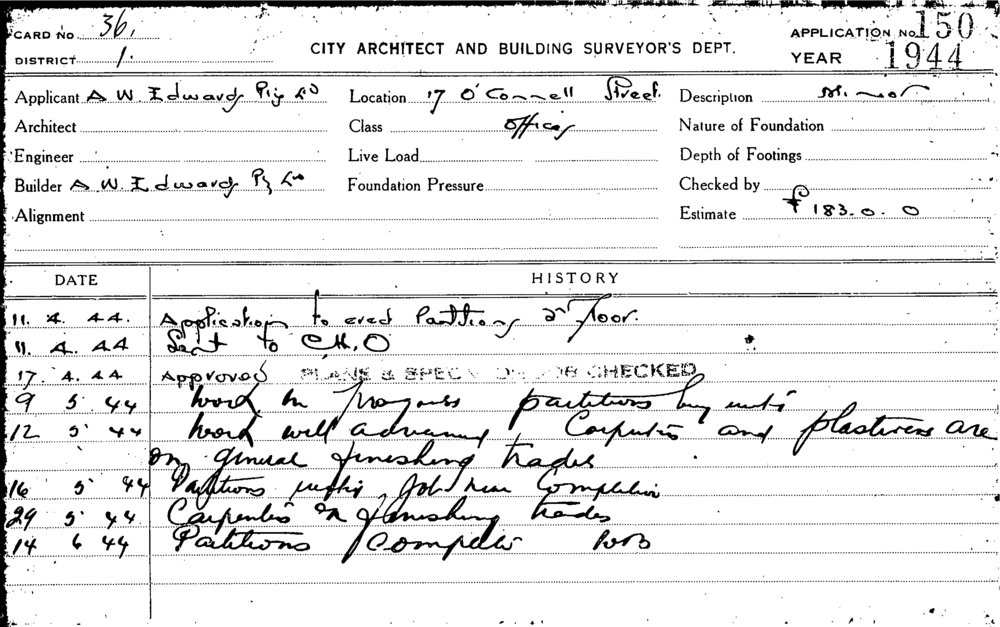 CARD No 36.
DISTRICT 1.
CITY ARCHITECT AND BUILDING SURVEYOR'S DEPT.
APPLICATION No. 150
YEAR 1944
Applicant A W. Edwards Pty Ld Location 17 O'Connell Street. Description Minor
Architect Class Offices Nature of Foundation
Engineer Live Load Depth of Footings
Builder A W. Edwards Pty Ld Foundation Pressure Checked by
Alignment Estimate £ 183. 0. 0
DATE HISTORY
11. 4. 44. Application to erect Partitions 2nd Floor.
11. 4. 44 Sent to C.H.O
17. 4. 44 Approved PLANS & SPEC'N ON JOB CHECKED
9 5 44 Work in progress partitions
12 5 44 Work well advanced Carpenters and plasterers are
on general finishing trades
16 5 44 Partitions Job near Completion
29 5 44 Carpenters on finishing trades
14 6 44 Partitions Complete